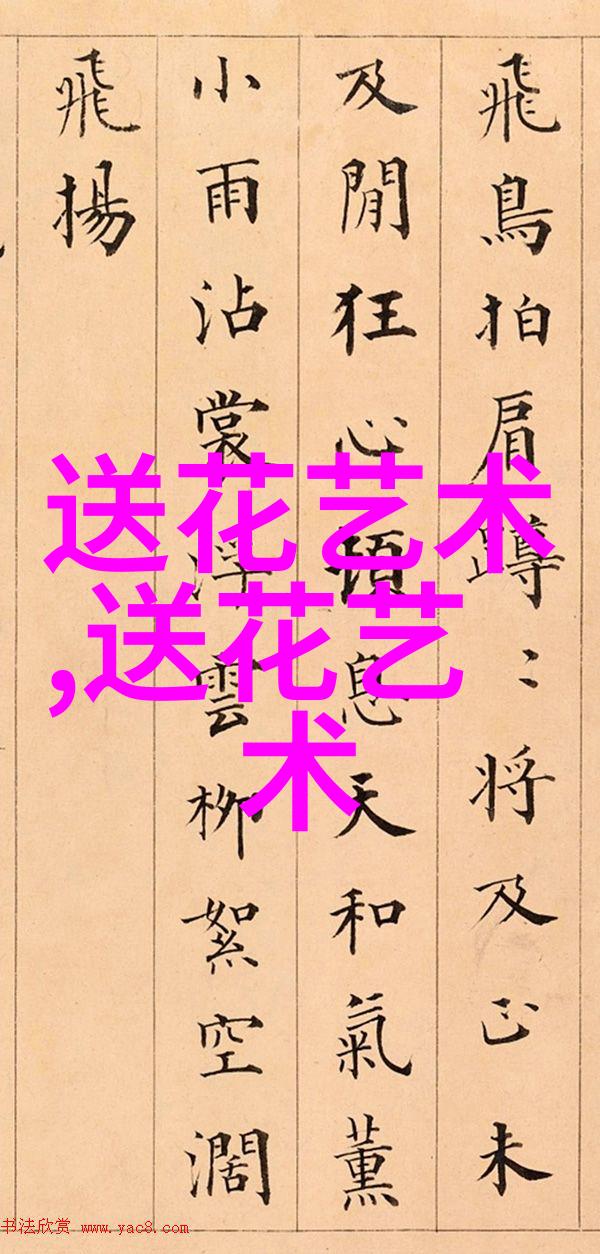 飛鳥拍肩蹲〻将及正未
及閒狂心頓息天和氣薰
小雨沾裳浮雲柳絮空濶
飛揚
送花艺术
,送花艺
术
书法欣赏 www.yac8.com